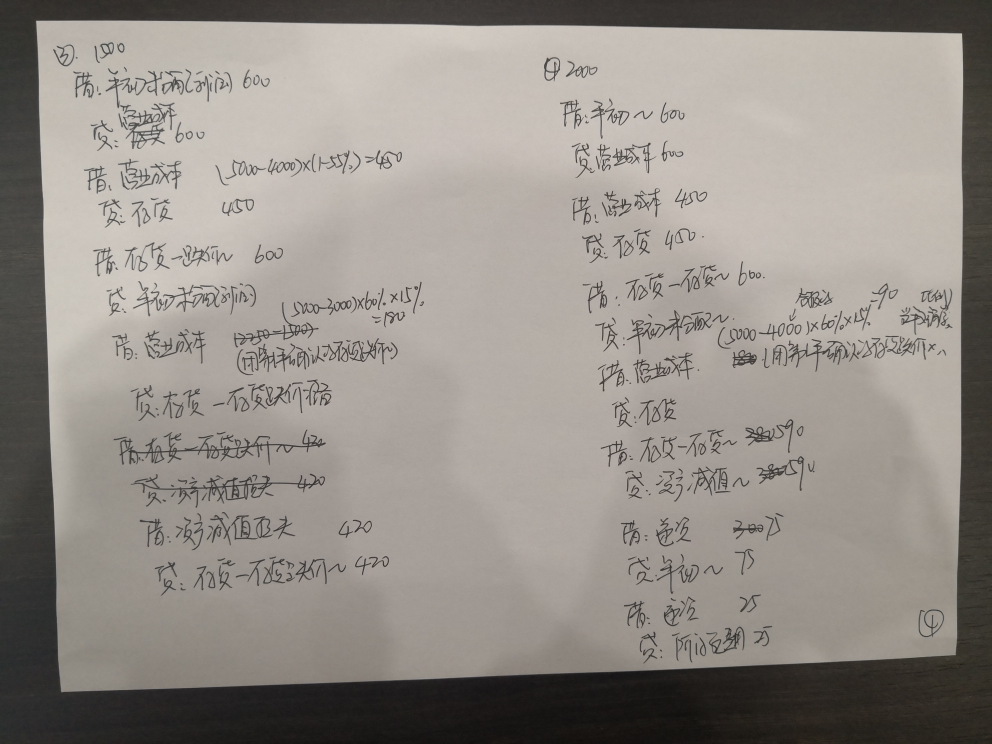 ③. 1500
借:年初未分配利润 600
营业成本
贷: 600
借:营业成本 (5000-4000)×(1-55%)=450
贷:存货 450
借:存货—跌价~ 600
贷:年初未分配利润
(5000-3000)×60%×15%
=180
借:营业成本
贷:存货—存货跌价准备
借:存货—存货跌价~ 420
贷:资产减值损失 420
借:资产减值损失 420
贷:存货—存货跌价~ 420
④ 2000
借:年初~ 600
贷:营业成本 600
借:营业成本 450
贷:存货 450.
借:存货—存货~ 600.
贷:年初未分配~
(5000-4000)×60%×15%=90
借:营业成本.
贷:存货
借:存货—存货~ 590
贷:资产减值~ 590
借:递延 75
贷:年初~ 75
借:递延 25
贷:所得税费用 25
④